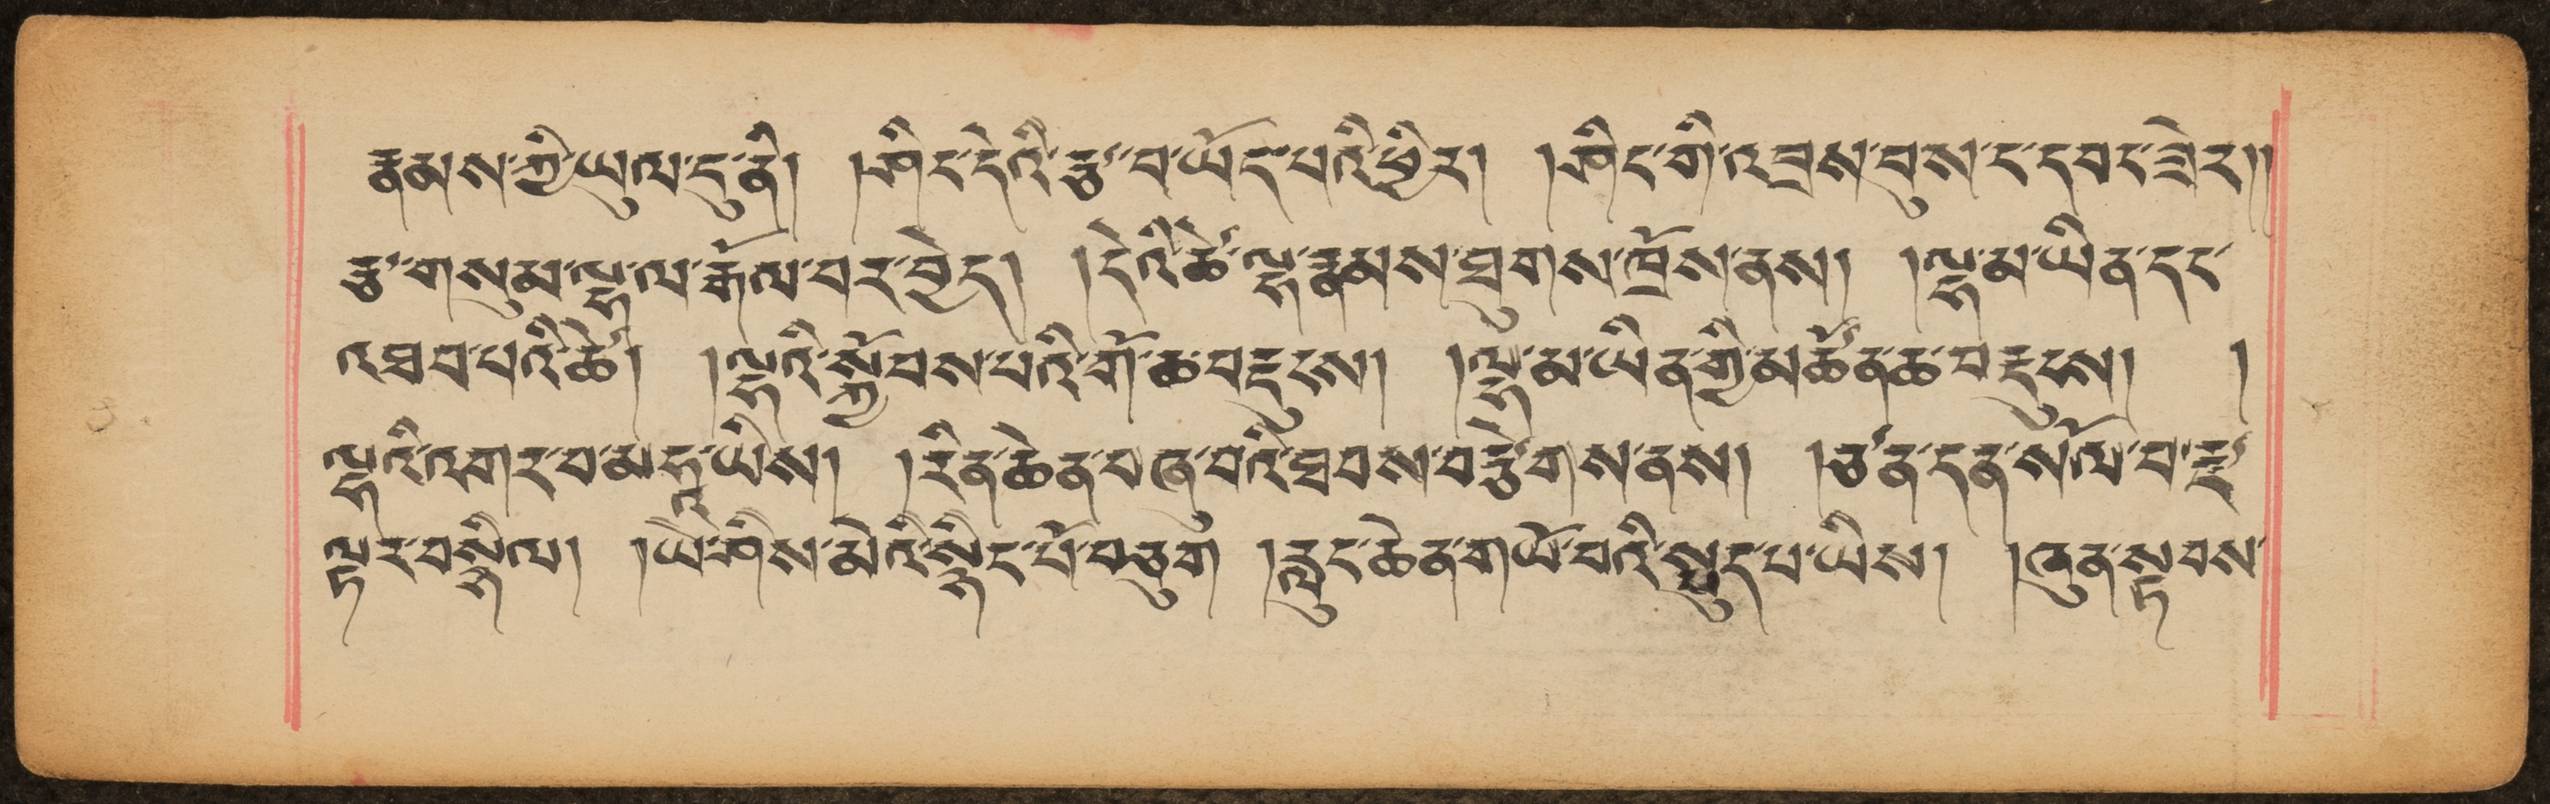 རྣམས་ཀྱི་ཡུལ་དུ་ནི། །ཤིང་དེའི་རྩ་བ་ཡོད་པའི་ཕྱིར། །ཤིང་གི་འབྲས་བུས་ང་དབང་ཟེར།།
རྩ་གསུམ་ལྷ་ལ་རྒོལ་བར་བྱེད། །དེའི་ཚེ་ལྷ་རྣམས་ཐུགས་ཁྲོས་ནས། །ལྷ་མ་ཡིན་དང་
འཐབ་པའི་ཚེ། །ལྷའི་སྐྱོབས་པའི་གོ་ཆ་བརྡུངས། །ལྷ་མ་ཡིན་གྱི་མཚོན་ཆ་བརྡུངས། །
ལྷའི་འགར་བ་མ་ཧཱ་ཡིས། །རིན་ཆེན་བཞུ་བའི་ཐབས་བརྩེགས་ནས། །ཙན་དན་སོལ་བ་རྫ་
ལྟར་བསྙིལ། །ཡེ་ཤེས་མེའི་སྙིང་པོ་བཅུག །རླུང་ཆེན་གཡོ་བའི་སྦུད་པ་ཡིས། །ཞུན་སྟབས་